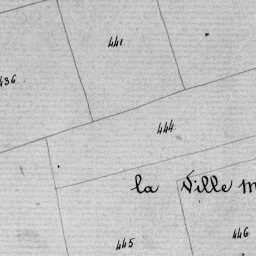 441
436
444
la Ville
445
446